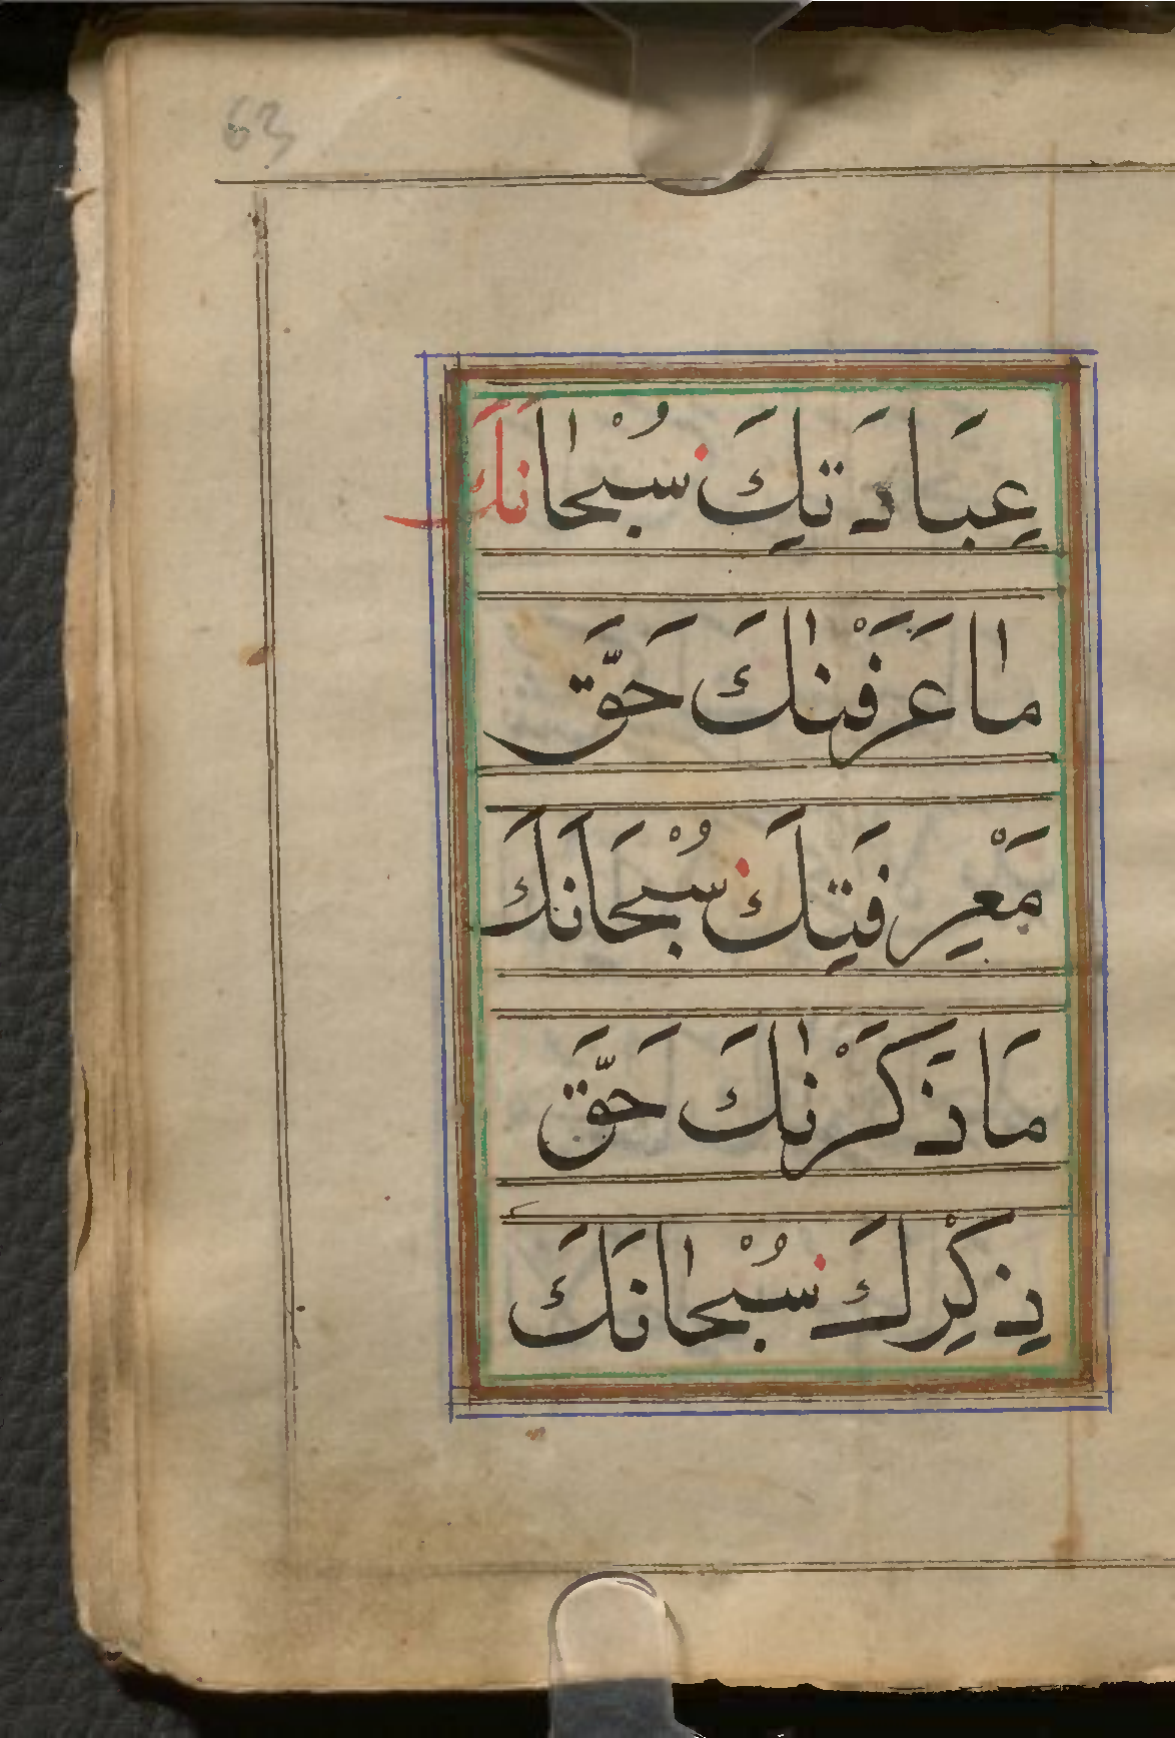 63
عِبَادَتِكَ سُبْحٰانَكَ
مٰا عَرَفْنٰكَ حَقَّ
مَعْرِفَتِكَ سُبْحَانَكَ
مَا ذَكَرْنٰكَ حَقَّ
ذِكْرِكَ سُبْحٰانَكَ